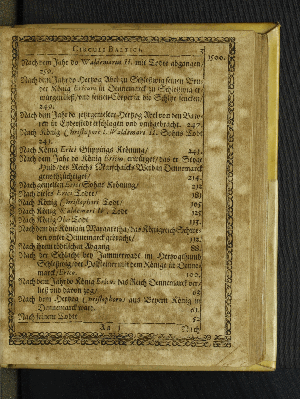 CIRCULI BALTICI. 3
1500.
Nach dem Jahr do Waldemarus II. mit Todt abgangen,
259.
Nach dem Jahr do Hertzog Abel zu Schleßwig seinen Bru-
der König Ericum in Dennemarck zu Schleßwig er-
würgen ließ, und seinen Cörper in die Schlye
Nach dem Jahr do jetztgemelter Hertzog Abel von den
ern in Eyderstedt erschlagen und umbgebracht, 247.
Nach König Christophori I. Waldemari II. Sohns Todt
241.
Nach König Erici Glippings Krönung, 241.
Nach dem Jahr do König Ericus erwürget, und er Stige
Hvide des Reichs Marschalcks Weib in Dennemarck
214.
Nach gemelten Erici Sohns Krönung, 212
Nach dieses Erici Todt, 181
Nach König Christophori Todt,
Nach König Waldemari Todt, 125
Nach König Olai Todt 113.
Nach dem die Königin Margaretha, das Königreich Schwe-
den unter Dennemarck gebracht, 112.
Nach ihrem tödtlichen Abgang 88.
Nach der Schlacht bey im Hertzogthumb
Schleßwig, der Holsteiner
marck, Erico, 100.
Nach dem Jahr do König Ericus das Reich Dennemarck ver-
ließ und davon zog,
Nach dem Hertzog Christophorus aus Beyern König in
Dennemarck war, 61.
Nach seinem Todte 52
Aa i Nach